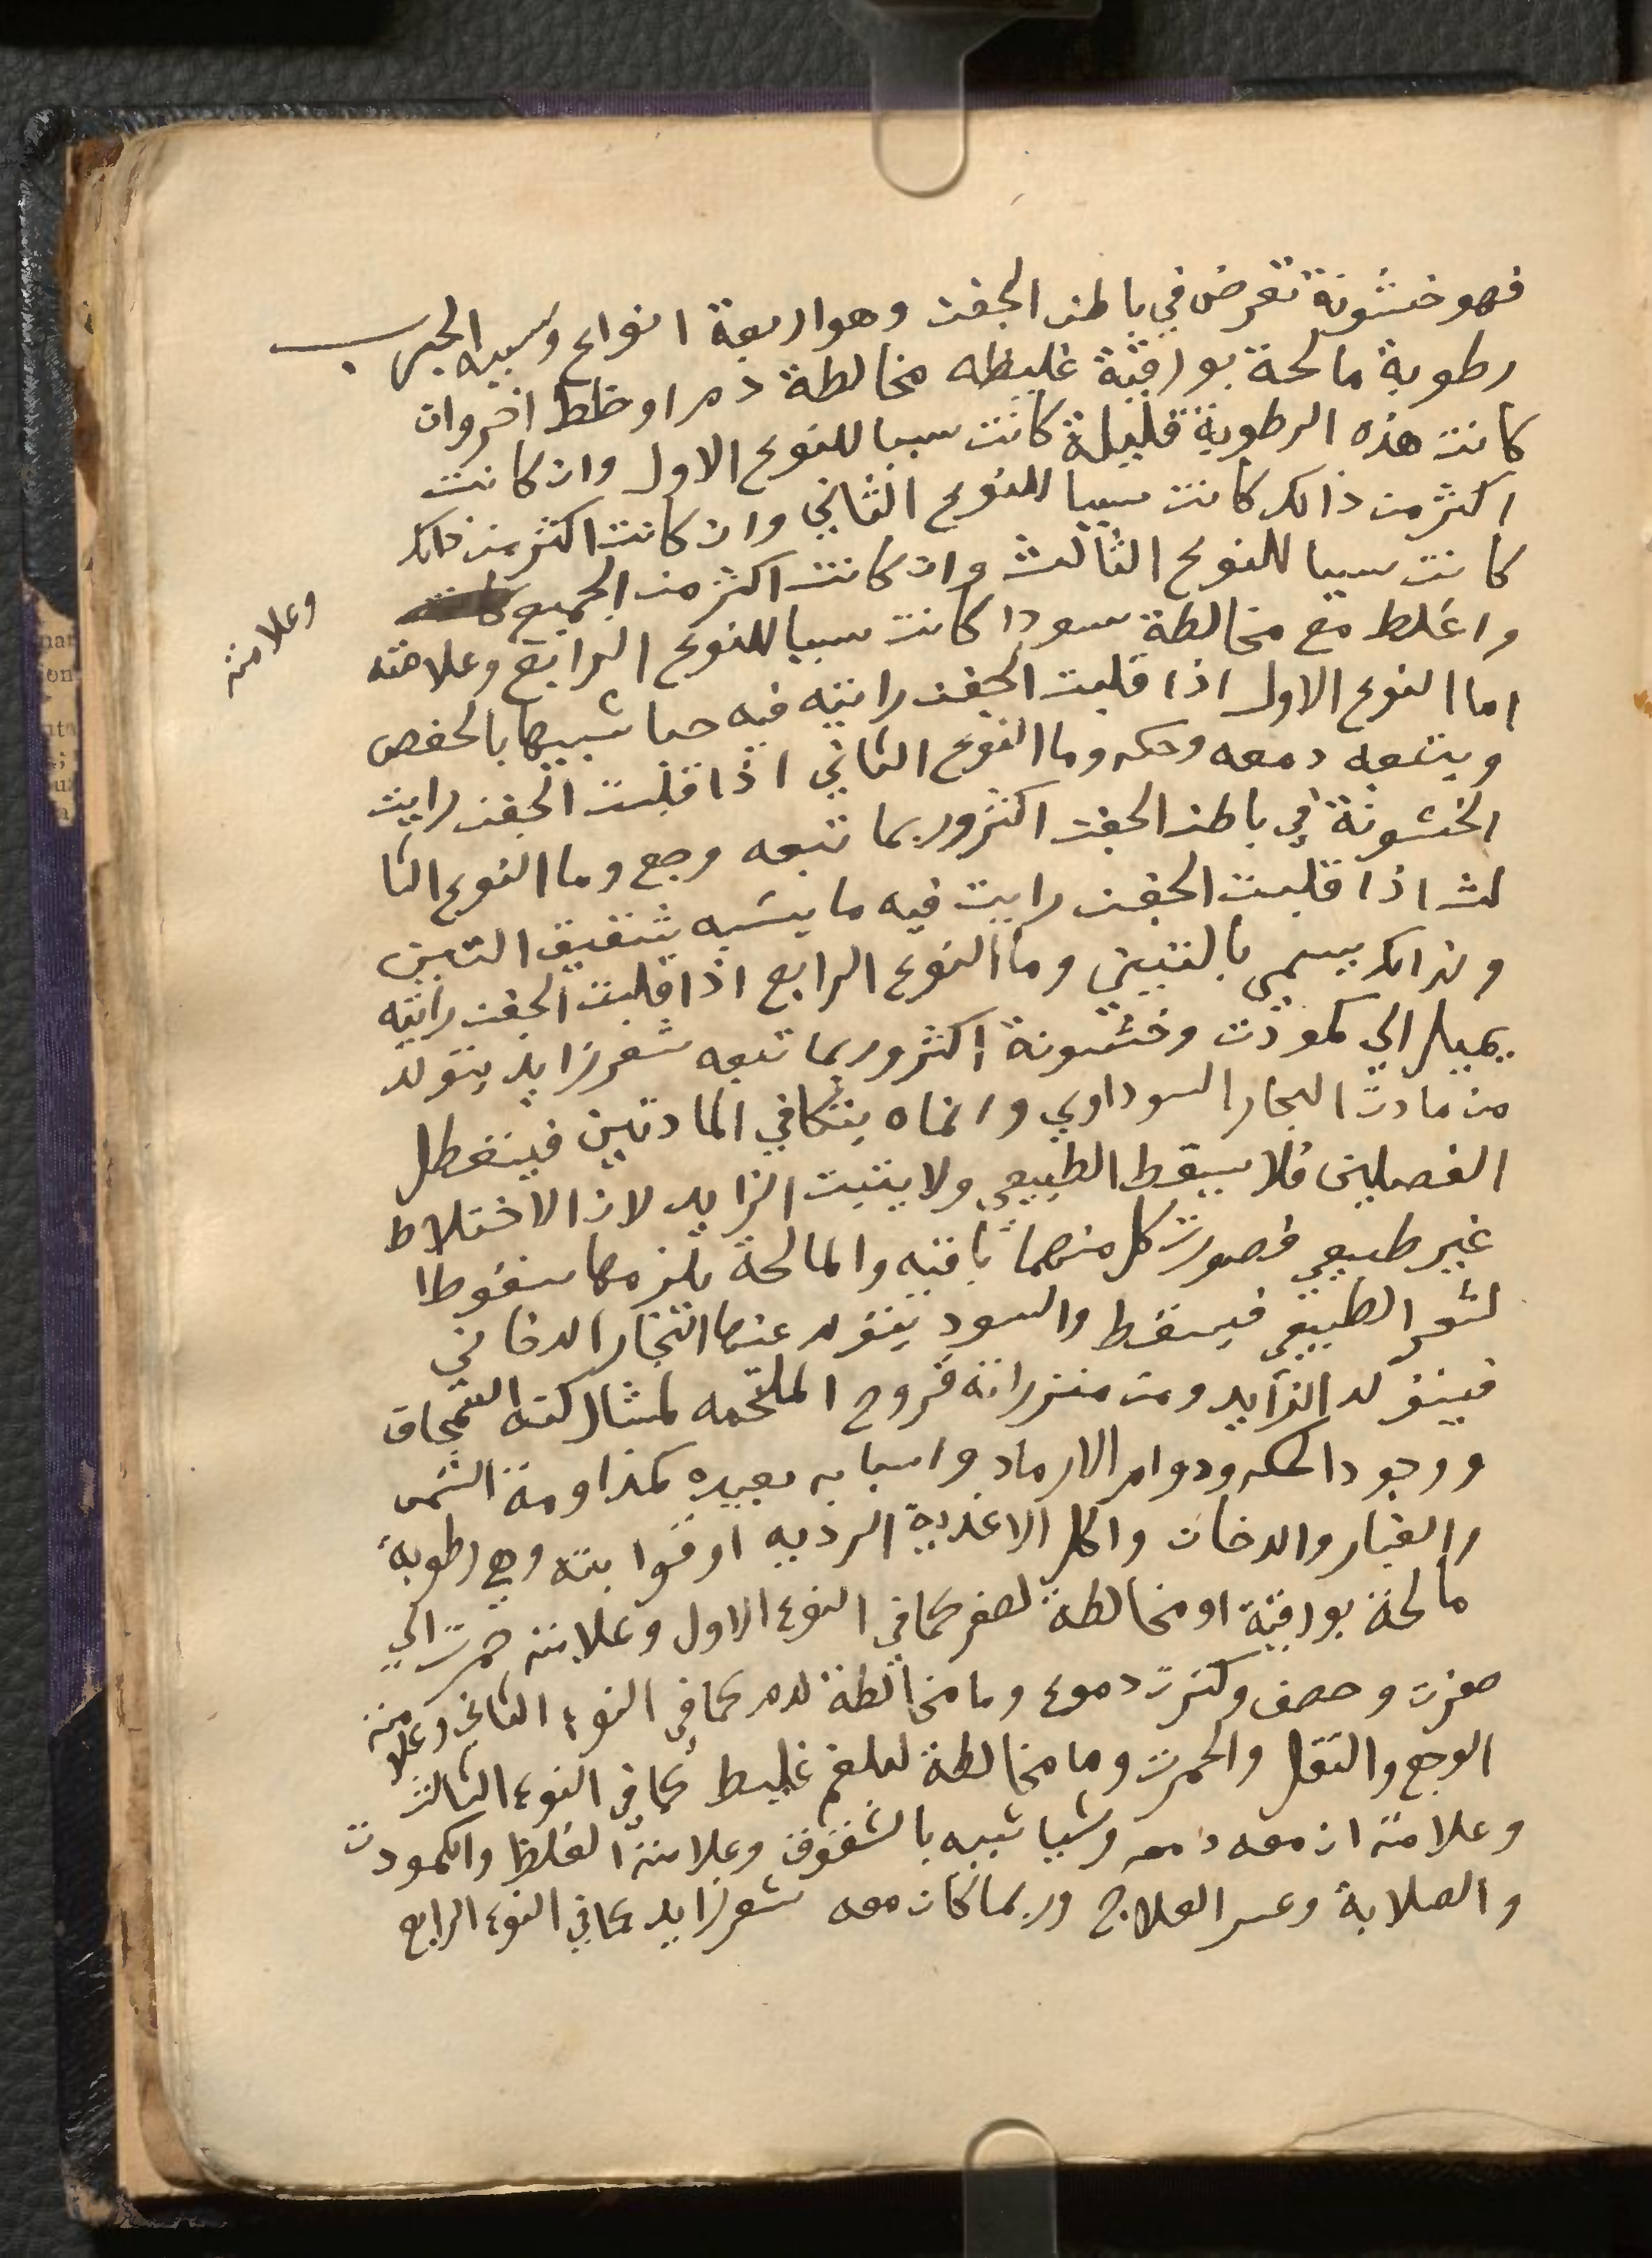 فهو خشونة تعرض في باطن الجفن وهو اربعة انواع وسببه الجرب
رطوبة مالحة بورقية غليظه مخالطة دم او خلط اخر وان
كانت هذه الرطوبة قليلة كانت سببا للنوع الاول وان كانت
اكثر من ذالك كانت سببا للنوع الثاني وان كانت اكثر من ذالك
كانت سببا للنوع الثالث وان كانت اكثر من الجميع
واغلط مع مخالطة سودا كانت سببا للنوع الرابع وعلامته
وعلامته
اما النوع الاول اذا قلبت الجفن رايته فيه حبا شبيها بالحفص
ويتبعه دمعه وحكه وما النوع الثاني اذا قلبت الجفن رايت
الخشونة في باطن الجفن اكثر وربما تبعه وجع وما النوع الثا
لث اذا قلبت الجفن رايت فيه ما يشبه بتنقيق التين
ولذالك يسمي بالتيني وما النوع الرابع اذا قلبت الجفن رايته
يميل الي كمودت وخشونة اكثر وربما تبعه شعر زايد يتولد
من مادت البخار السوداوي وانماه يتكافي المادتين فينفطل
الفصلين فلا يسقط الطبيعي ولا يتبت الزايد لان الاختلاط
غير طبيعي فصورت كل منهما باقيه والمالحة يلزمها سقوط ا
لشعر الطبيعي فيسقط والسود يتولد عنها البخار الدخاني
فيتولد الزايد ومن منذراته قروح الملتحمه لمشاركته السمحاق
ووجود الحكه ودوام الارماد واسبابه بعيده كمداومة الشمس
والغبار والدخان واكل الاغدية الرديه او قوابته وهي رطوبة
مالحة بورقية او مخالطة لصفر كما في النوع الاول وعلامته حمرت الي
صفرت وحصف وكثرت دموع وما مخالطة لدم كما في النوع الثاني وعلامته
الوجع والثقل والحمرت وما مخالطة لبلغم غليط كما في النوع الثالث
وعلامته ان معه دمعه وشيا شبيه بالشقوق وعلامته الغلظ والكمودت
والصلابة وعسر العلاج وربما كان معه شعر زايد كما في النوع الرابع